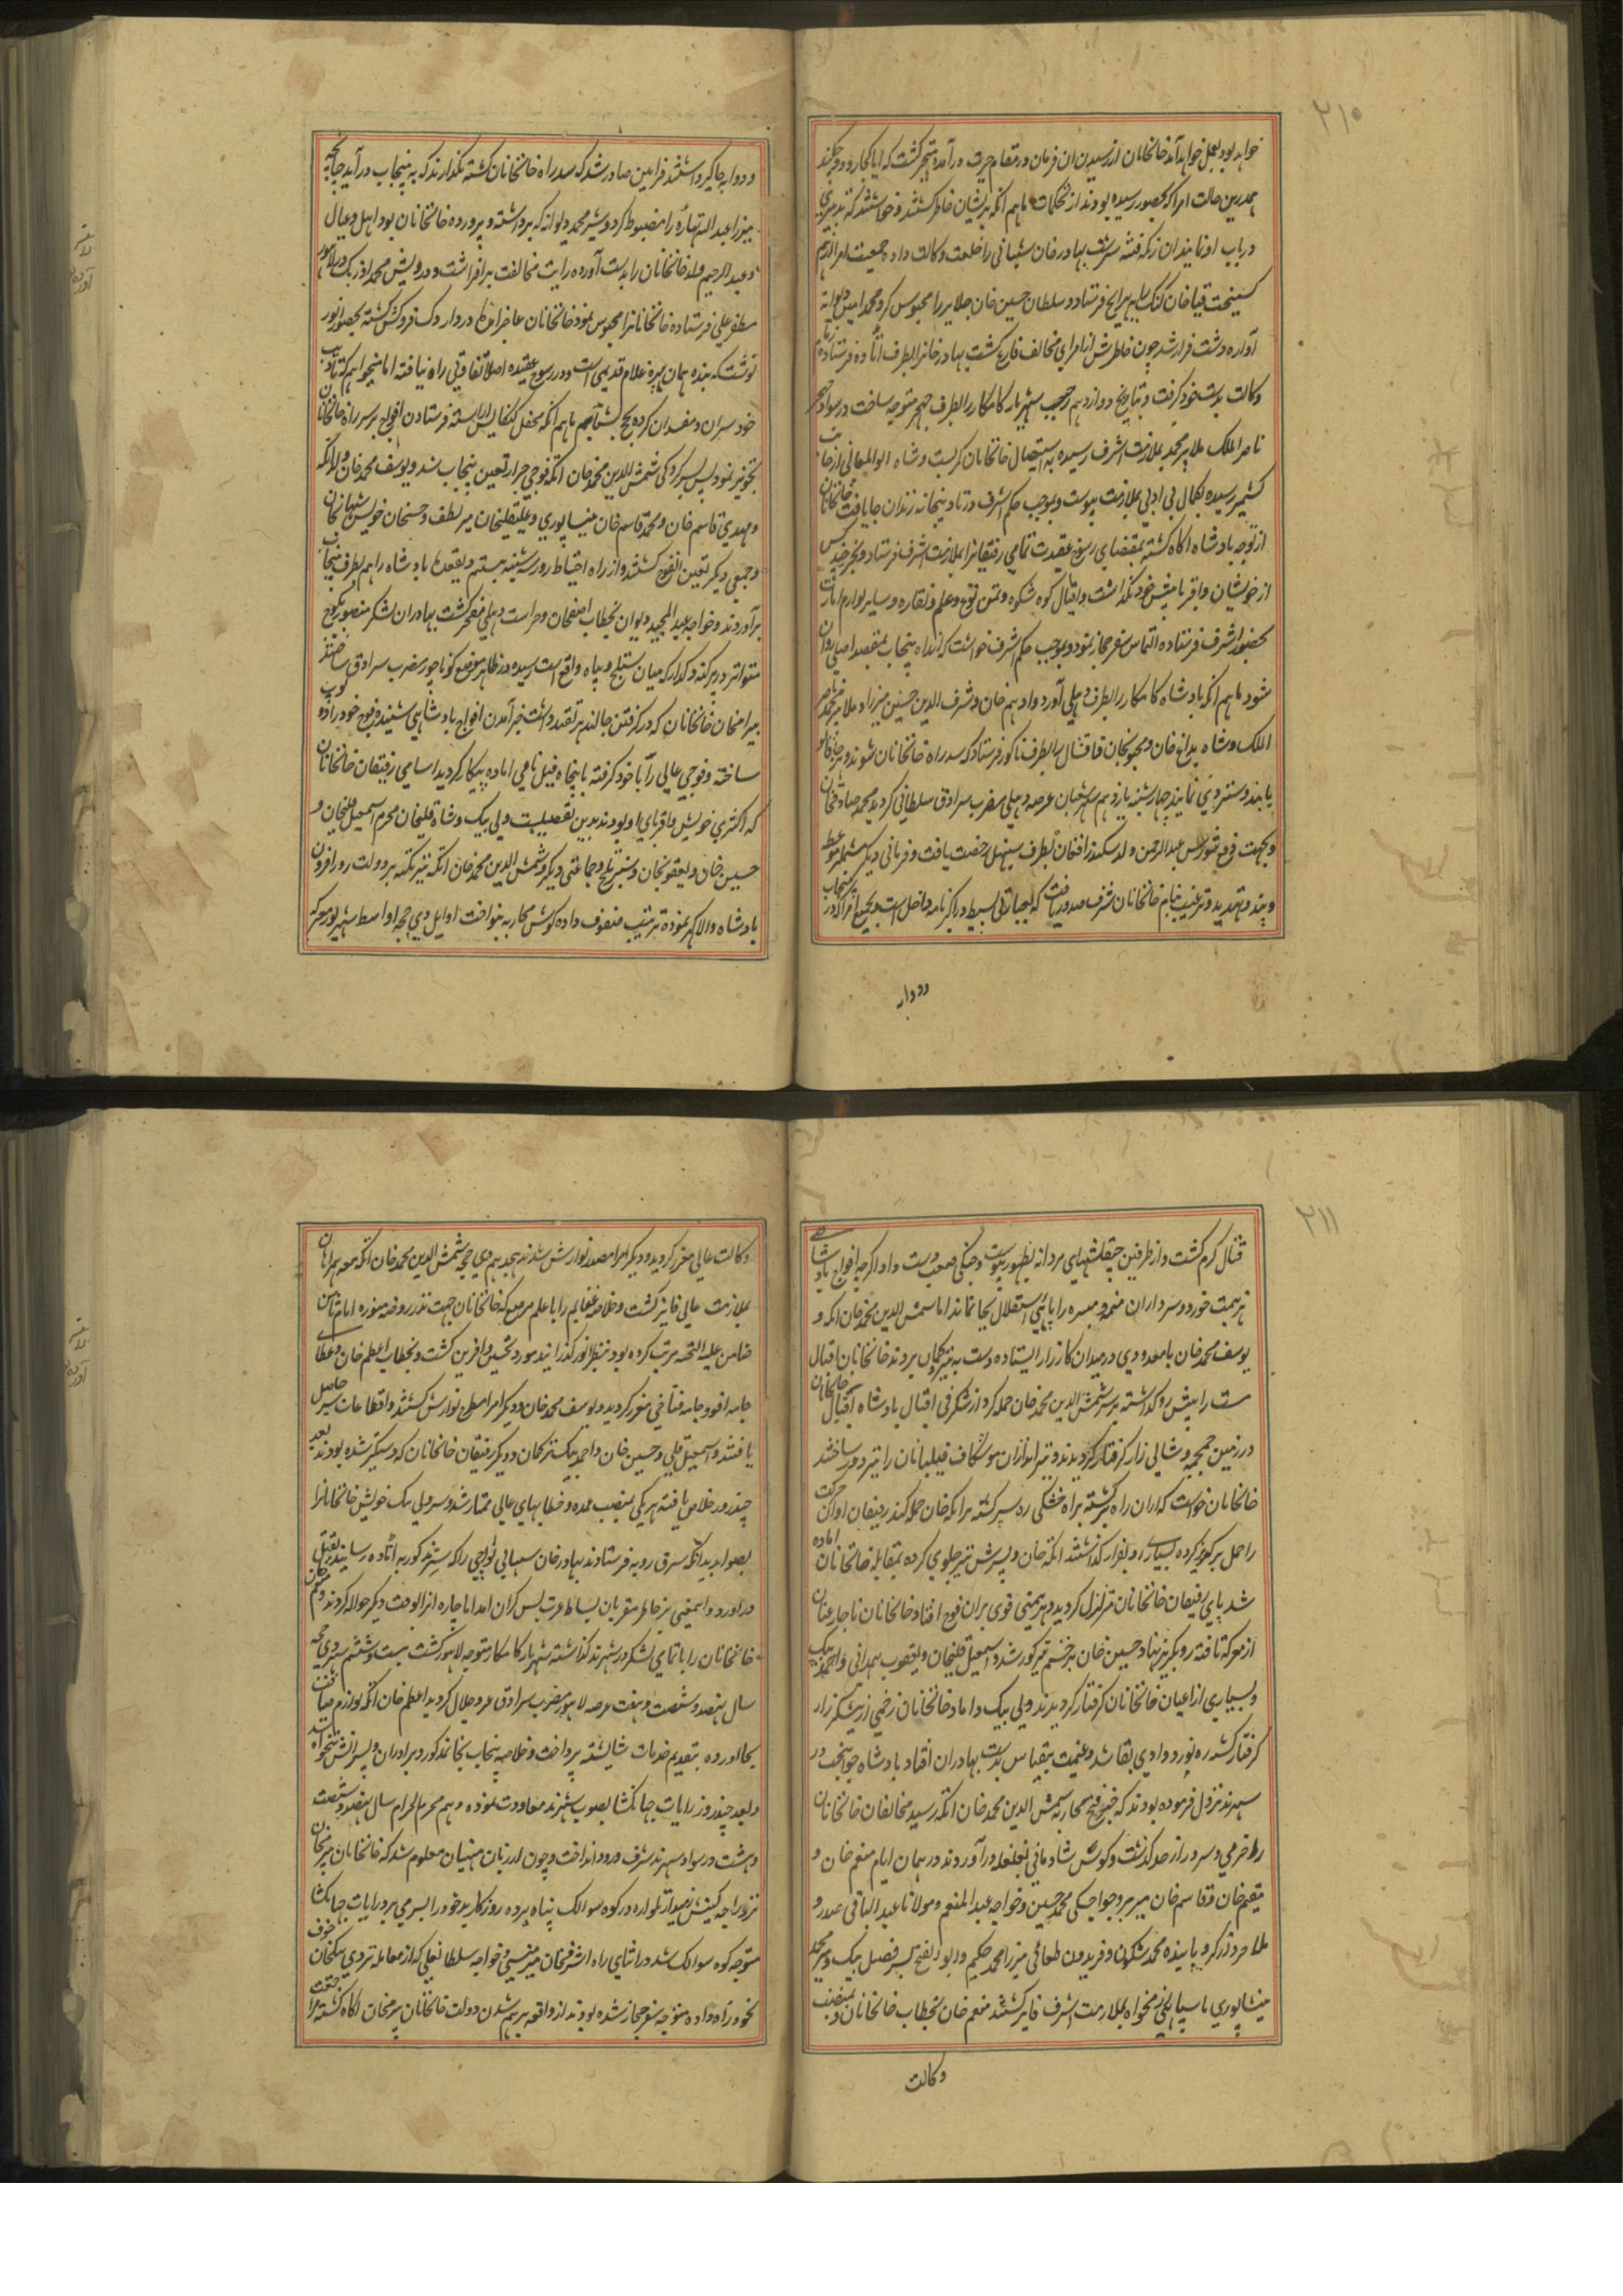 ۲۱۰
خواهد بود بعمل خواهد آمد خانخانان از رسیدن ان فرمان در مقام حیرت درآمده متحیر گشت که ایا کجا رود و چکند
همدرین حالت امرا که بحضور رسیده بودند از تحکمات ماهم انکه پریشان خاطر کشتند و خواستند که تدبیری
در باب او نمایند ان زنکه فتنه سرشت بهادر خان شیبانی را خلعت وکالت داده جمعیت امرا از هم
کسیخت قیاخان کنک را به بهرایچ فرستاد و سلطان حسین خان جلایر را محبوس کرد و محمد امین دیوانه
آواره دشت فرار شد چون خاطرش از امرای مخالف فارغ کشت بهادر خانرا بطرف اتاوه فرستاده
وکالت بدست خود کرفت و بتاریخ دوازدهم رجب شهریار کامکار را بطرف جهجر متوجه ساخت در سواد جهجر
ناصر الملک ملا پیر محمد بملازمت اشرف رسیده به استیصال خانخانان کمر بست و شاه ابو المعالی از جانب
کشمیر رسیده بکمال بی ادبی بملازمت پیوست و بموجب حکم اشرف در تادیبخانه زندان جا یافت خانخانان
از توجه بادشاه اکاه کشته بمقتضای رسوخ عقیدت تمامی رفیقانرا بملازمت اشرف فرستاد و بجز چند کس
از خویشان و اقربا پیش خود نکذاشت و اقیال کوه شکوه و تمن توغ و علم و نقاره و سایر لوازم امارت
بحضور اشرف فرستاده التماس سفر حجاز نمود و بموجب حکم اشرف خواست که از راه پنجاب بمقصد اصلی روان
شود ماهم انکه بادشاه کامکار را بطرف دهلی آورد و ادهم خان و شرف الدین حسین میرزا و ملا پیر محمد ناصر
الملک و شاه بداغ خان و مجنونخان قاقشال را بطرف ناکور فرستاد که سد راه خانخانان شوند و هر جا قابو
یابند دستبردی نمایند چهارشنبه یازدهم شهر شعبان عرصه دهلی مضرب سرادق سلطانی کردید محمد صادقخان
وبجهت دفع شورش عبد الرحمن ولد سکندر افغان بطرف سنبهل رخصت یافت و فرمانی دیکر مشتملبر وعظ
و پند و تهدید و ترغیب بنام خانخانان شرف صدور یافت که بعبارتی بسیط در اکبرنامه داخل است و بجمیع امرا که در پنجاب
ودوابه
ودوابه جاکیر داشتند فرامین صادر شد که سد راه خانخانان کشته نکذارند که به پنجاب درآید چنانچه
میرزا عبد الله تهاره را مضبوط کرد و شیر محمد دیوانه که برداشته و پرورده خانخانان بود اهل و عیال
و عبد الرحیم ولد خانخانان را بدست آورده رایت مخالفت برافراشت و درویش محمد اوزبک در لاهور
مظفر علی فرستاده خانخانانرا محبوس نمود خانخانان
نوشت که بنده همان پیره غلام قدیمی است و در رسوخ عقیده اصلا تفاوتی راه نیافته اما میخواهم که تادیب
خود سران و مفسدان کرده بحج بشتابم ماهم انکه محفل کنکایش اراسته فرستادن افواج بر سر راه خانخانان
تجویز نمود بسرکردکی شمش الدین محمد خان اتکه فوجی جرار تعین پنجاب شد و یوسف محمد خان ولد اتکه
و مهدی قاسم خان و محمد قاسم خان نیشاپوری و علیقلیخان میر لطف و حسنخان خویش شهابخان
و جمعی دیکر تعین انفوج کشتند و از راه احتیاط روز سه شنبه بیستم ذیقعده بادشاه را هم بطرف پنجاب
برآوردند و خواجه عبد المجید دیوان بخطاب اصفخان و حراست دهلی مفتخر کشت بهادران لشکر منصور بکوچ
متواتر در پرکنه دکدار که میان ستلج و بیاه واقع است رسیده در ظاهر موضع کوناچور مضرب سرادق ساختند
بیرامخان خانخانان که در کرفتن جالندهر تقید داشت خبر آمدن افواج بادشاهی شنیده فوج خود را دو توپ
ساخته و فوجی عالی را با خود کرفته با پنجاه فیل نامی اماده پیکار کردید اسامی رفیقان خانخانان
که اکثری خویش و اقربای او بودند بدین تفصیلست ولی بیک و شاه قلیخان محرم اسمعیل قلیخان و
حسین خان و یعقوبخان و سبز تلخ و جماعتی دیکر و شمش الدین محمد خان اتکه نیز تکیه بر دولت روز افزون
بادشاه والا کهر نموده ترتیب صفوف داده کوس محاربه بنواخت اوایل ذی حجه اواسط شهریور معرکه
۲۱۱
قتال کرم کشت و از طرفین چپقلشهای مردانه بظهور پیوست و جنکی صعب دست داد اکرچه افواج بادشاهی
هزیمت خورد و سرداران میمنه و میسره را پای استقلال بجا نماند اما شمس الدین محمد خان اتکه و
یوسف محمد خان با معدودی در میدان کارزار ایستاده دست به تیر و کمان بردند خانخانان افیال
مست را پیش رو کذاشته بر سر شمش الدین محمد خان حمله کرد از شکرفی اقبال بادشاه افیال خانخانان
در زمین جمجمه و شالی زار کرفتار کردیدند و تیراندازان موشکاف فیلبانان را تیر دوز ساختند
خانخانان خواست که از ان راه برکشته براه خشکی ره سپر کشته بر اتکه خان حمله کند رفیقان او ان حرکت
را حمل بر کریز کرده بسیاری رو بفرار کذاشتند اتکه خان و پسرش تیز جلوی کرده بمقابله خانخانان اماده
شد پای رفیقان خانخانان متزلزل کردید و هزیمتی قوی بران فوج افتاد خانخانان ناچار عنان
از معرکه تافته رو بکریز نهاد حسین خان بزخم تیر کور شد و اسمعیل قلیخان و یعقوب همدانی و احمد بیک
و بسیاری از اعیان خانخانان کرفتار کردیدند و ولی بیک داماد خانخانان زخمی در نیشکر زار
کرفتار کشته ره نورد وادی بقا شد و غنیمت بیقیاس بدست بهادران افتاد بادشاه جوانبخت در
سهرند نزول فرموده بودند که خبر فتح محاربه شمش الدین محمد خان اتکه رسید مخالفان خانخانان
را خرمی و سرور از حد کذشت و کوس شادمانی بغلغله درآوردند در همان ایام منعم خان و
مقیم خان و قاسم خان میر بر و خواجکی محمد حسین و خواجه عبد المنعم و مولانا عبد الباقی صدر و
ملا خرد زرکر و پاینده محمد شکون و فریدون طغائی میرزا محمد حکیم و ابو الفتح پسر فضیل بیک و میر محمد
نیشاپوری با سپاهی نیکخواه بملازمت اشرف فایز کشتند منعم خان بخطاب خانخانان و بمنصب
وکالت
وکالت عالی مقرر کردید و دیکر امرا مصدر نوازش شدند هجدهم ذی حجه شمش الدین محمد خان اتکه معه همراهان
بملازمت عالی فایز کشت و خلاصه غنایم را با علم مرصع که خانخانان جهت نذر روضه منوره امام ثامن
ضامن علیه التحیه مرتب کرده بود بنظر انور کذرانیده مورد تحسین و افرین کشت و بخطاب اعظم خان و عطای
جامه افو و جامه فتاخی مقرر کردید و یوسف محمد خان و دیکر امرا مطرح نوازش کشتند و اقطاعات سیر حاصل
یافتند و اسمعیل قلی و حسین خان و احمد بیک ترکمان و دیکر رفیقان خانخانان که دستکیر شده بودند بعد
چند روز خلاص یافته هر یکی بمنصب عمده و خطابهای عالی ممتاز شد و سر ولی بیک خویش خانخانانرا
بصوابدید اتکه بشرق رویه فرستادند بهادر خان شیبانی تواچی را که سر مذکور به اتاوه رسانید بقتل
درآورد و اینمعنی بر خاطر مقربان بساط عزت بس کران امد اما چاره انرا بوقت دیکر حواله کردند و منعم خان
خانخانان را با تمامی لشکر در سهرند کذاشته شهریار کامکار متوجه لاهور کشت بیست و ششم شهر ذی حجه
سال نهصد و شصت و هفت عرصه لاهور مضرب سرادق عز و جلال کردید اعظم خان اتکه لوازم ضیافت
بجا آورده بتقدیم خدمات شایسته پرداخت و خلاصه پنجاب بخانمذکور و برادران و پسرانش تنخواه شد
و بعد چند روز رایات جهانکشا بصوب سهرند معاودت نموده دهم محرم الحرام سال نهصد و شصت
و هشت در سواد سهرند شرف ورود انداخت و چون از زبان منهیان معلوم شد که خانخانان بیرمخان
نزد راجه کنیش زمیندار تلواره در کوه سوالک پناه برده روزکار بد خود را بسر می برد رایات جهانکشا
متوجه کوه سوالک شد در اثنای راه اشرفخان میر منشی و خواجه سلطانعلی که از معامله تردی بیکخان خوف
بخود راه داده متوجه سفر حجاز شده بودند از واقعه برهم شدن دولت خانخانان بیرمخان اکاه کشته مراجعت